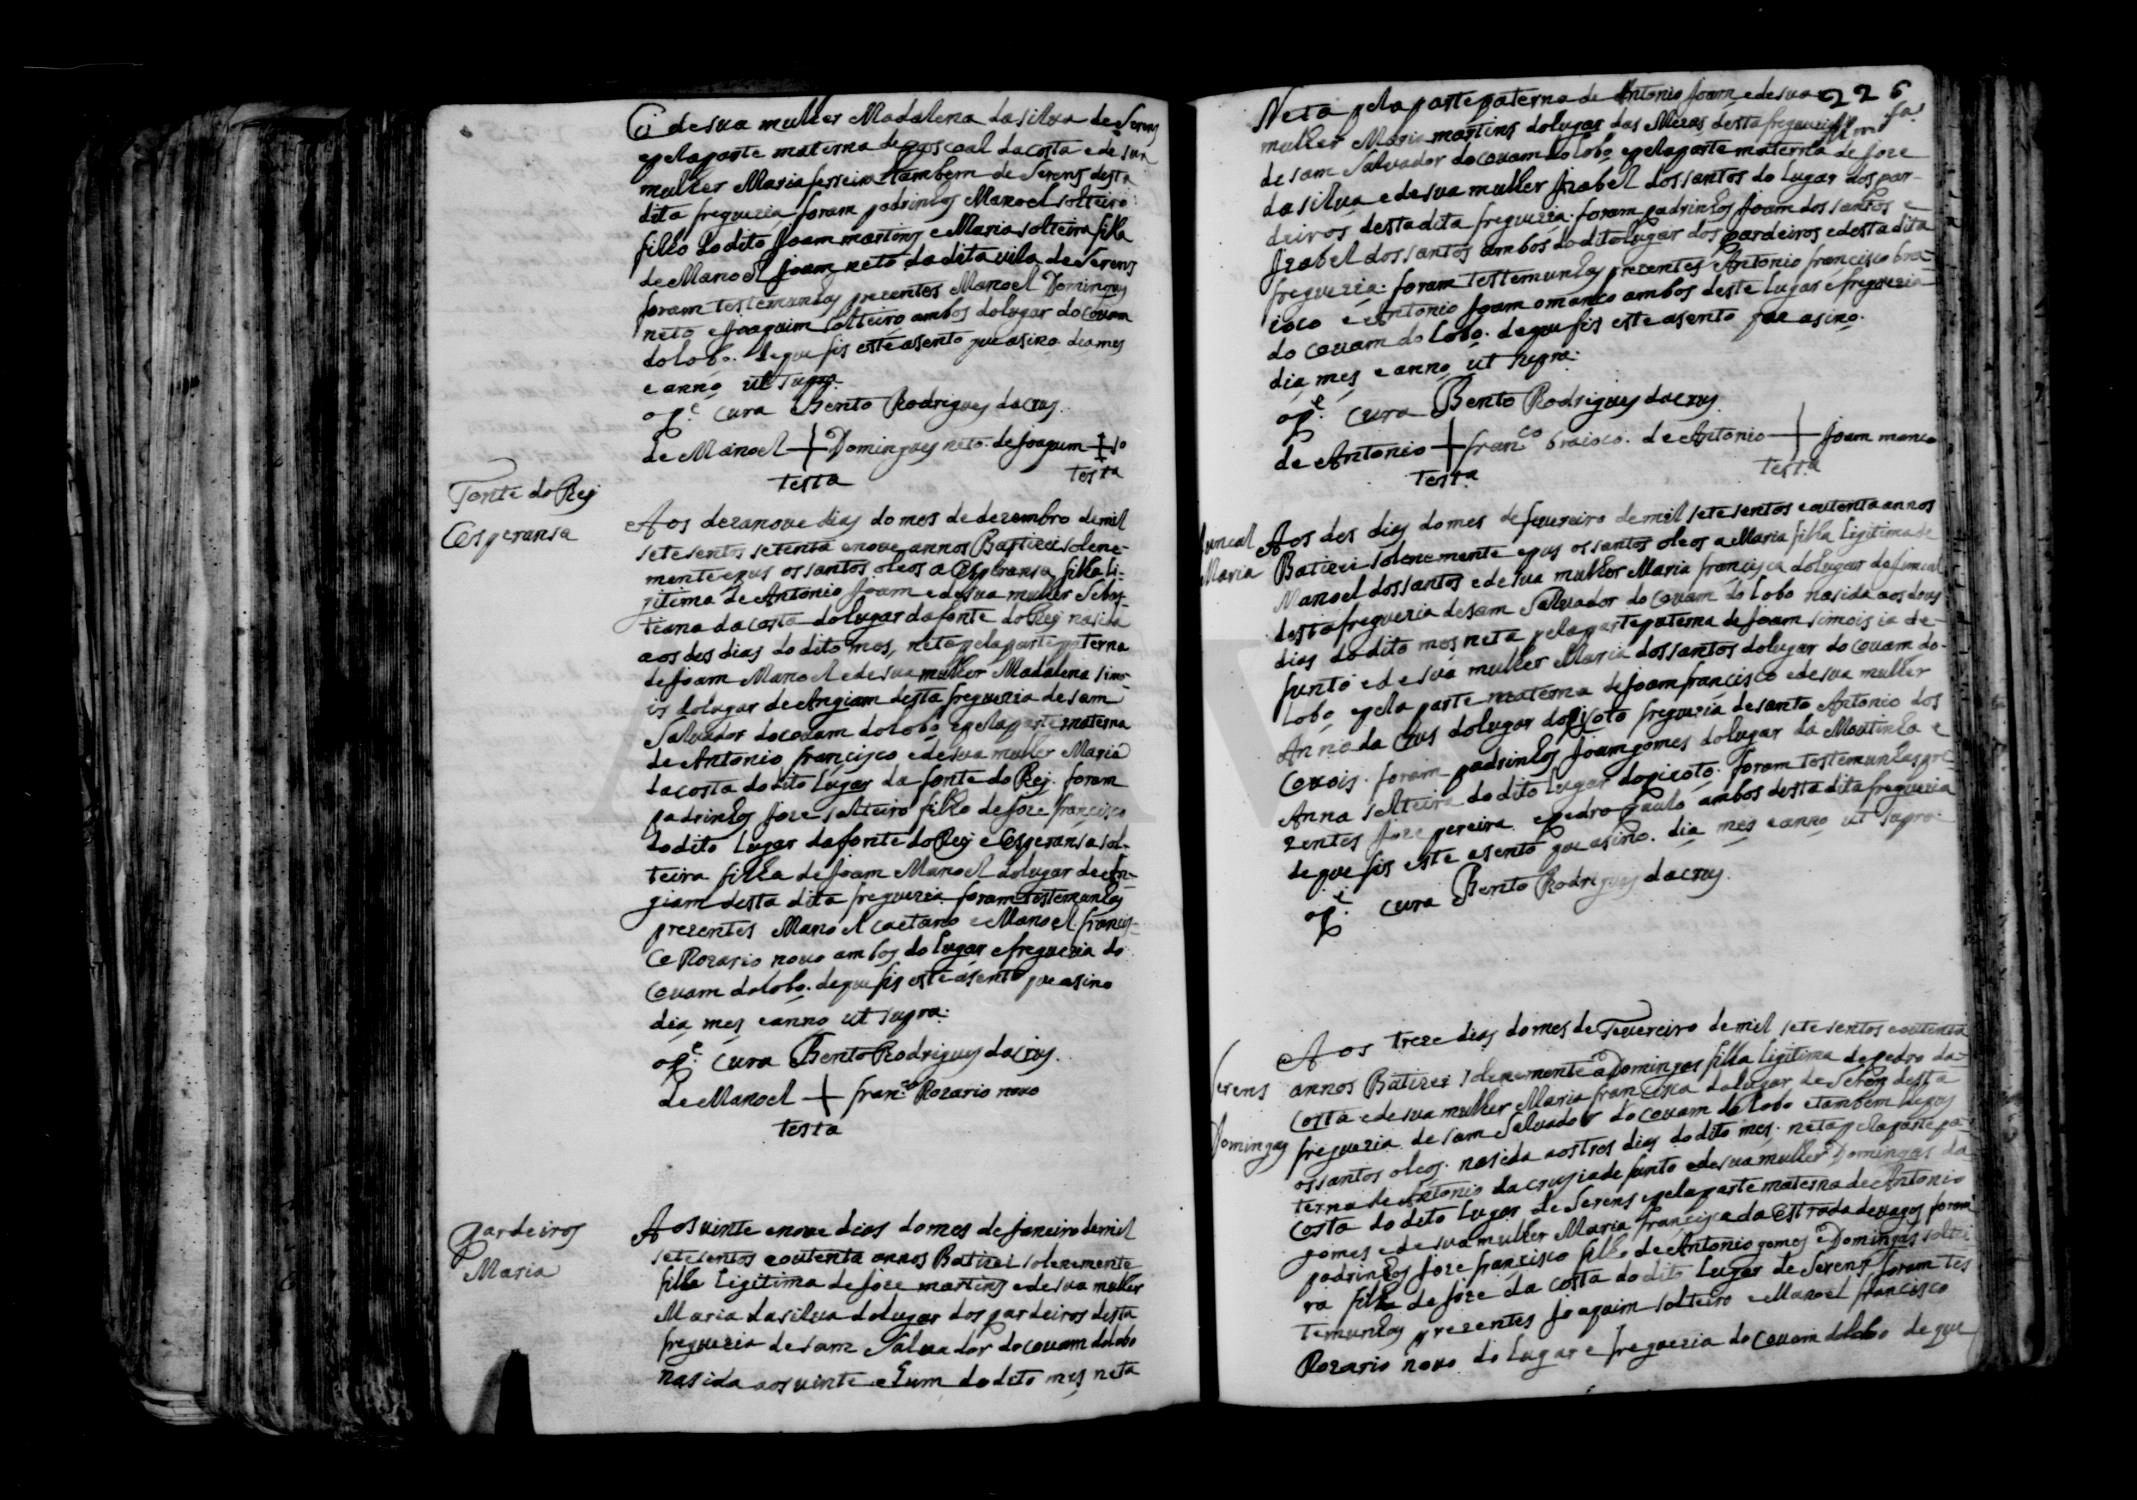 e de sua mulher Madalena da silva de Serens
e pela parte materna de pascoal da costa e de sua
mulher Maria ferreira tambem de Serens desta
dita freguezia foram padrinhos Manoel solteiro
filho do dito Joam martins e Maria solteira filha
de Manoel Joam neto da dita vila de Serens
foram testemunhas prezentes Manoel Domingues
neto e Joaquim solteiro ambos do lugar do covam
do lobo. de que fis este asento que asino dia mes
e anno ut supra.
o P.e cura Bento Rodrigues da crus.
de Manoel + Domingues neto. de Joaquim + so
testa testa
Fonte do Rej
Esperansa
Aos dezanove dias do mes de dezembro de mil
sete sentos setenta e nove annos Baptizei solene-
mente e pus os santos oleos a Esperansa filha li-
gitima de Antonio Joam e de sua mulher Sebas-
tiana da costa do lugar da fonte do Rej nasida
aos des dias do dito mes, neta pela parte paterna
de Joam Manoel e de sua mulher Madalena simo-
is do lugar de Angiam desta freguezia de sam
Salvador do covam do lobo e pela parte materna
de Antonio francisco e de sua mulher Maria
da costa do dito lugar da fonte do Rej. foram
padrinhos Joze solteiro filho de Joze francisco
do dito lugar da fonte do Rej e Esperansa sol-
teira filha de Joam Manoel do lugar de An-
giam desta dita freguezia foram testemunhas
prezentes Manoel caetano e Manoel francis-
co Rozario novo ambos do lugar e freguezia do
covam do lobo. de que fis este asento que asino
dia mes e anno ut supra.
o P.e cura Bento Rodrigues da crus.
de Manoel + fran.co Rozario novo
testa
pardeiros
Maria
Aos vinte e nove dias do mes de Janeiro de mil
sete sentos e outenta annos Batizei solenemente
filha ligitima de Joze martins e de sua mulher
Maria da silva do lugar dos pardeiros desta
freguezia de sam Salvador do covam do lobo
nasida aos vinte e hum do dito mes neta
226
Neta pela parte paterna de Antonio Joam e de sua
mulher Maria martins do lugar das Mezas desta freguezia
de sam Salvador do covam do lobo e pela parte materna de Joze
da silva e de sua mulher Izabel dos santos do lugar dos par-
deiros desta dita freguezia. foram padrinhos Joam dos santos e
Izabel dos santos ambos do dito lugar dos pardeiros e desta dita
freguezia. foram testemunhas prezentes Antonio francisco bra-
ioco e Antonio Joam o manco ambos deste lugar e freguezia
do covam do lobo. de que fis este asento que asino.
dia mes e anno ut supra.
o P.e cura Bento Rodrigues da crus.
de Antonio + fran.co braioco. de Antonio + Joam manco
testa testa
funcal
Maria
Aos des dias do mes de fevereiro de mil sete sentos e outenta annos
Batizei solenemente e pus os santos oleos a Maria filha ligitima de
Manoel dos santos e de sua mulher Maria francisca do lugar do funcal
desta freguezia de sam Salvador do covam do lobo nasida aos dous
dias do dito mes neta pela parte paterna de Joam simois ia de-
funto e de sua mulher Maria dos santos do lugar do covam do
lobo e pela parte materna de Joam francisco e de sua mulher
Anna da crus do lugar do picoto freguezia de santo Antonio dos
covois. foram padrinhos Joam gomes do lugar da Moutinha e
Anna solteira do dito lugar do picoto. foram testemunhas pre-
zentes Joze pereira e pedro paulo ambos desta dita freguezia
de que fis este asento que asino. dia mes e anno ut supra.
o P.e cura Bento Rodrigues da crus.
Serens
Domingas
Aos treze dias do mes de Fevereiro de mil sete sentos e outenta
annos Batizei solenemente a Domingas filha ligitima de pedro da
costa e de sua mulher Maria francisca do lugar de Serens desta
freguezia de sam Salvador do covam do lobo e tambem lhe pus
os santos oleos. nasida aos tres dias do dito mes. neta pela parte pa-
terna de Antonio da crus ia defunto e de sua mulher Domingas da
costa do dito lugar de Serens e pela parte materna de Antonio
gomes e de sua mulher Maria francisca da Estrada de vagos foram
padrinhos Joze francisco filho de Antonio gomes e Domingas soltei
ra filha de Joze da costa do dito lugar de Serens foram tes
temunhas prezentes Joaquim solteiro e Manoel francisco
Rozario novo do lugar e freguezia do covam do lobo de que